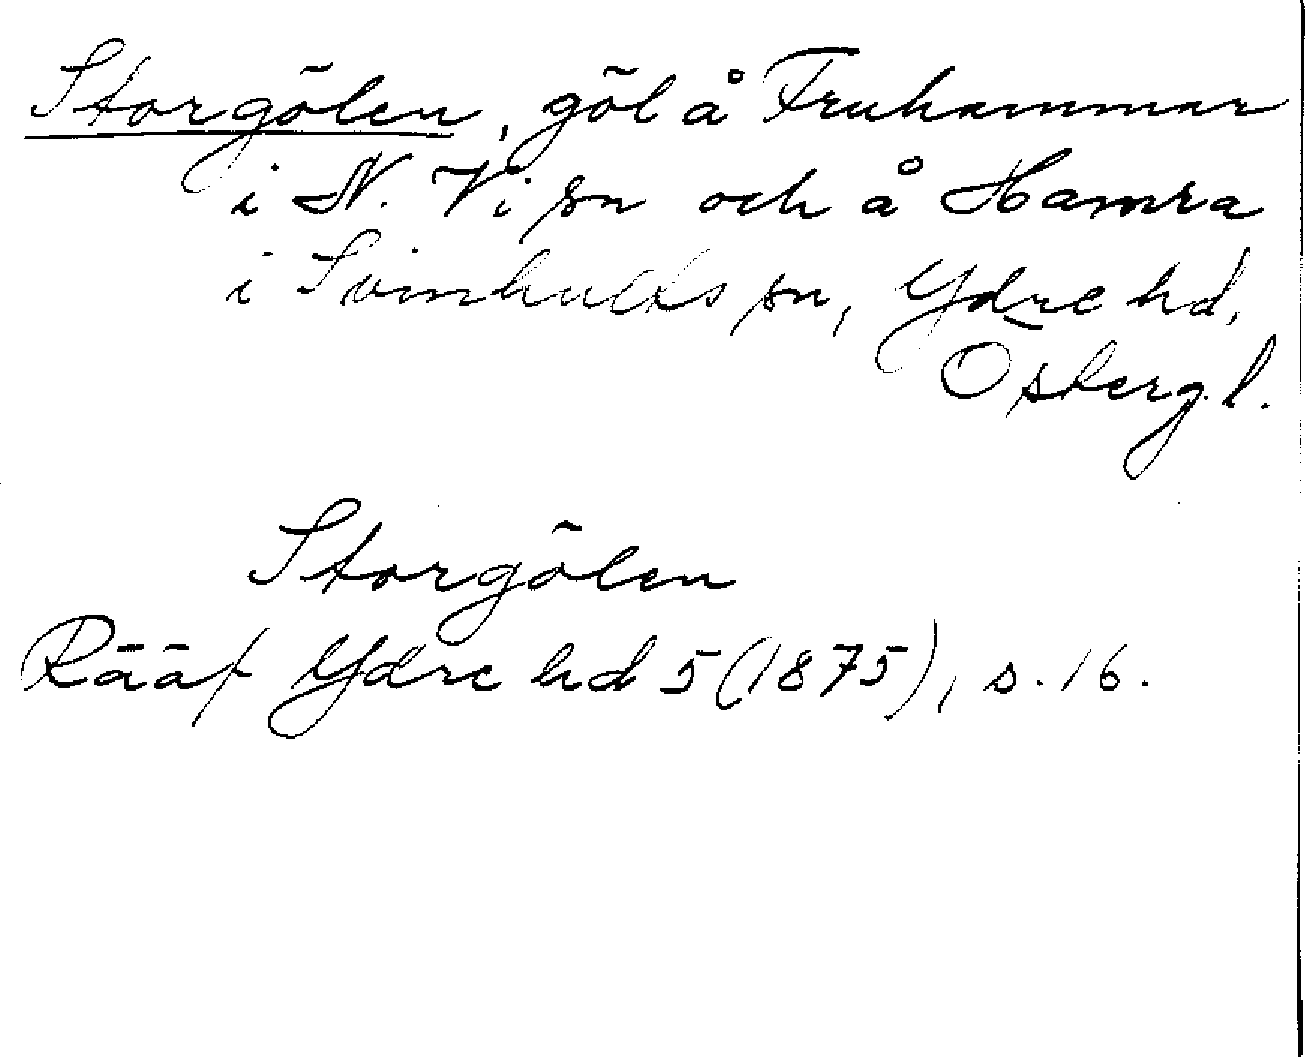 Storgölen, göl å Fruhammar
i N. Vi sn och å Hamra
i Svinhults sn, Ydre hd,
Österg.l.
Storgölen
Rääf Ydre hd 5 (1875), s. 16.